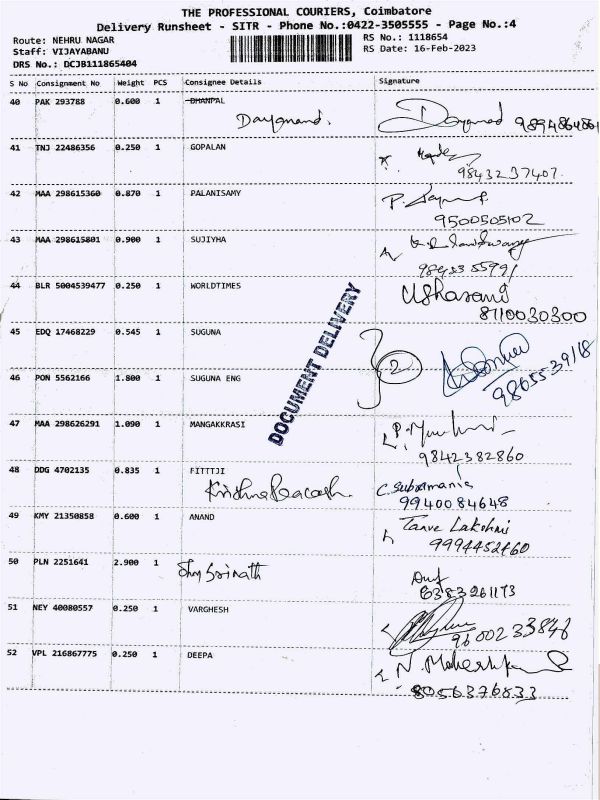 THE PROFESSIONAL COURIERS, Coimbatore
Delivery Runsheet - SITR - Phone No.:0422-3505555 - Page No.:4
Route: NEHRU NAGAR
RS No.: 1118654
Staff: VIJAYABANU
RS Date: 16-Feb-2023
DRS No.: DCJB111865404
S No Consignment No Weight PCS Consignee Details Signature
40 PAK 293788 0.600 1 DHANPAL
Dayanand. Dayanand 9894864861
41 TNJ 22486356 0.250 1 GOPALAN
98432 37407
42 MAA 298615360 0.870 1 PALANISAMY
9500505102
43 MAA 298615801 0.900 1 SUJIYHA
44 BLR 5004539477 0.250 1 WORLDTIMES
8710030300
DOCUMENT DELIVERY
45 EDQ 17468229 0.545 1 SUGUNA
2
9865539118
46 PON 5562166 1.800 1 SUGUNA ENG
47 MAA 298626291 1.090 1 MANGAKKRASI
9842382860
48 DDG 4702135 0.835 1 FITTTJI
C. Subramania
9940084648
49 KMY 21350858 0.600 1 ANAND
Lakshmi
9994452760
50 PLN 2251641 2.900 1
Srinath
6383261173
51 NEY 40080557 0.250 1 VARGHESH
9600233846
52 VPL 216867775 0.250 1 DEEPA
8056376833